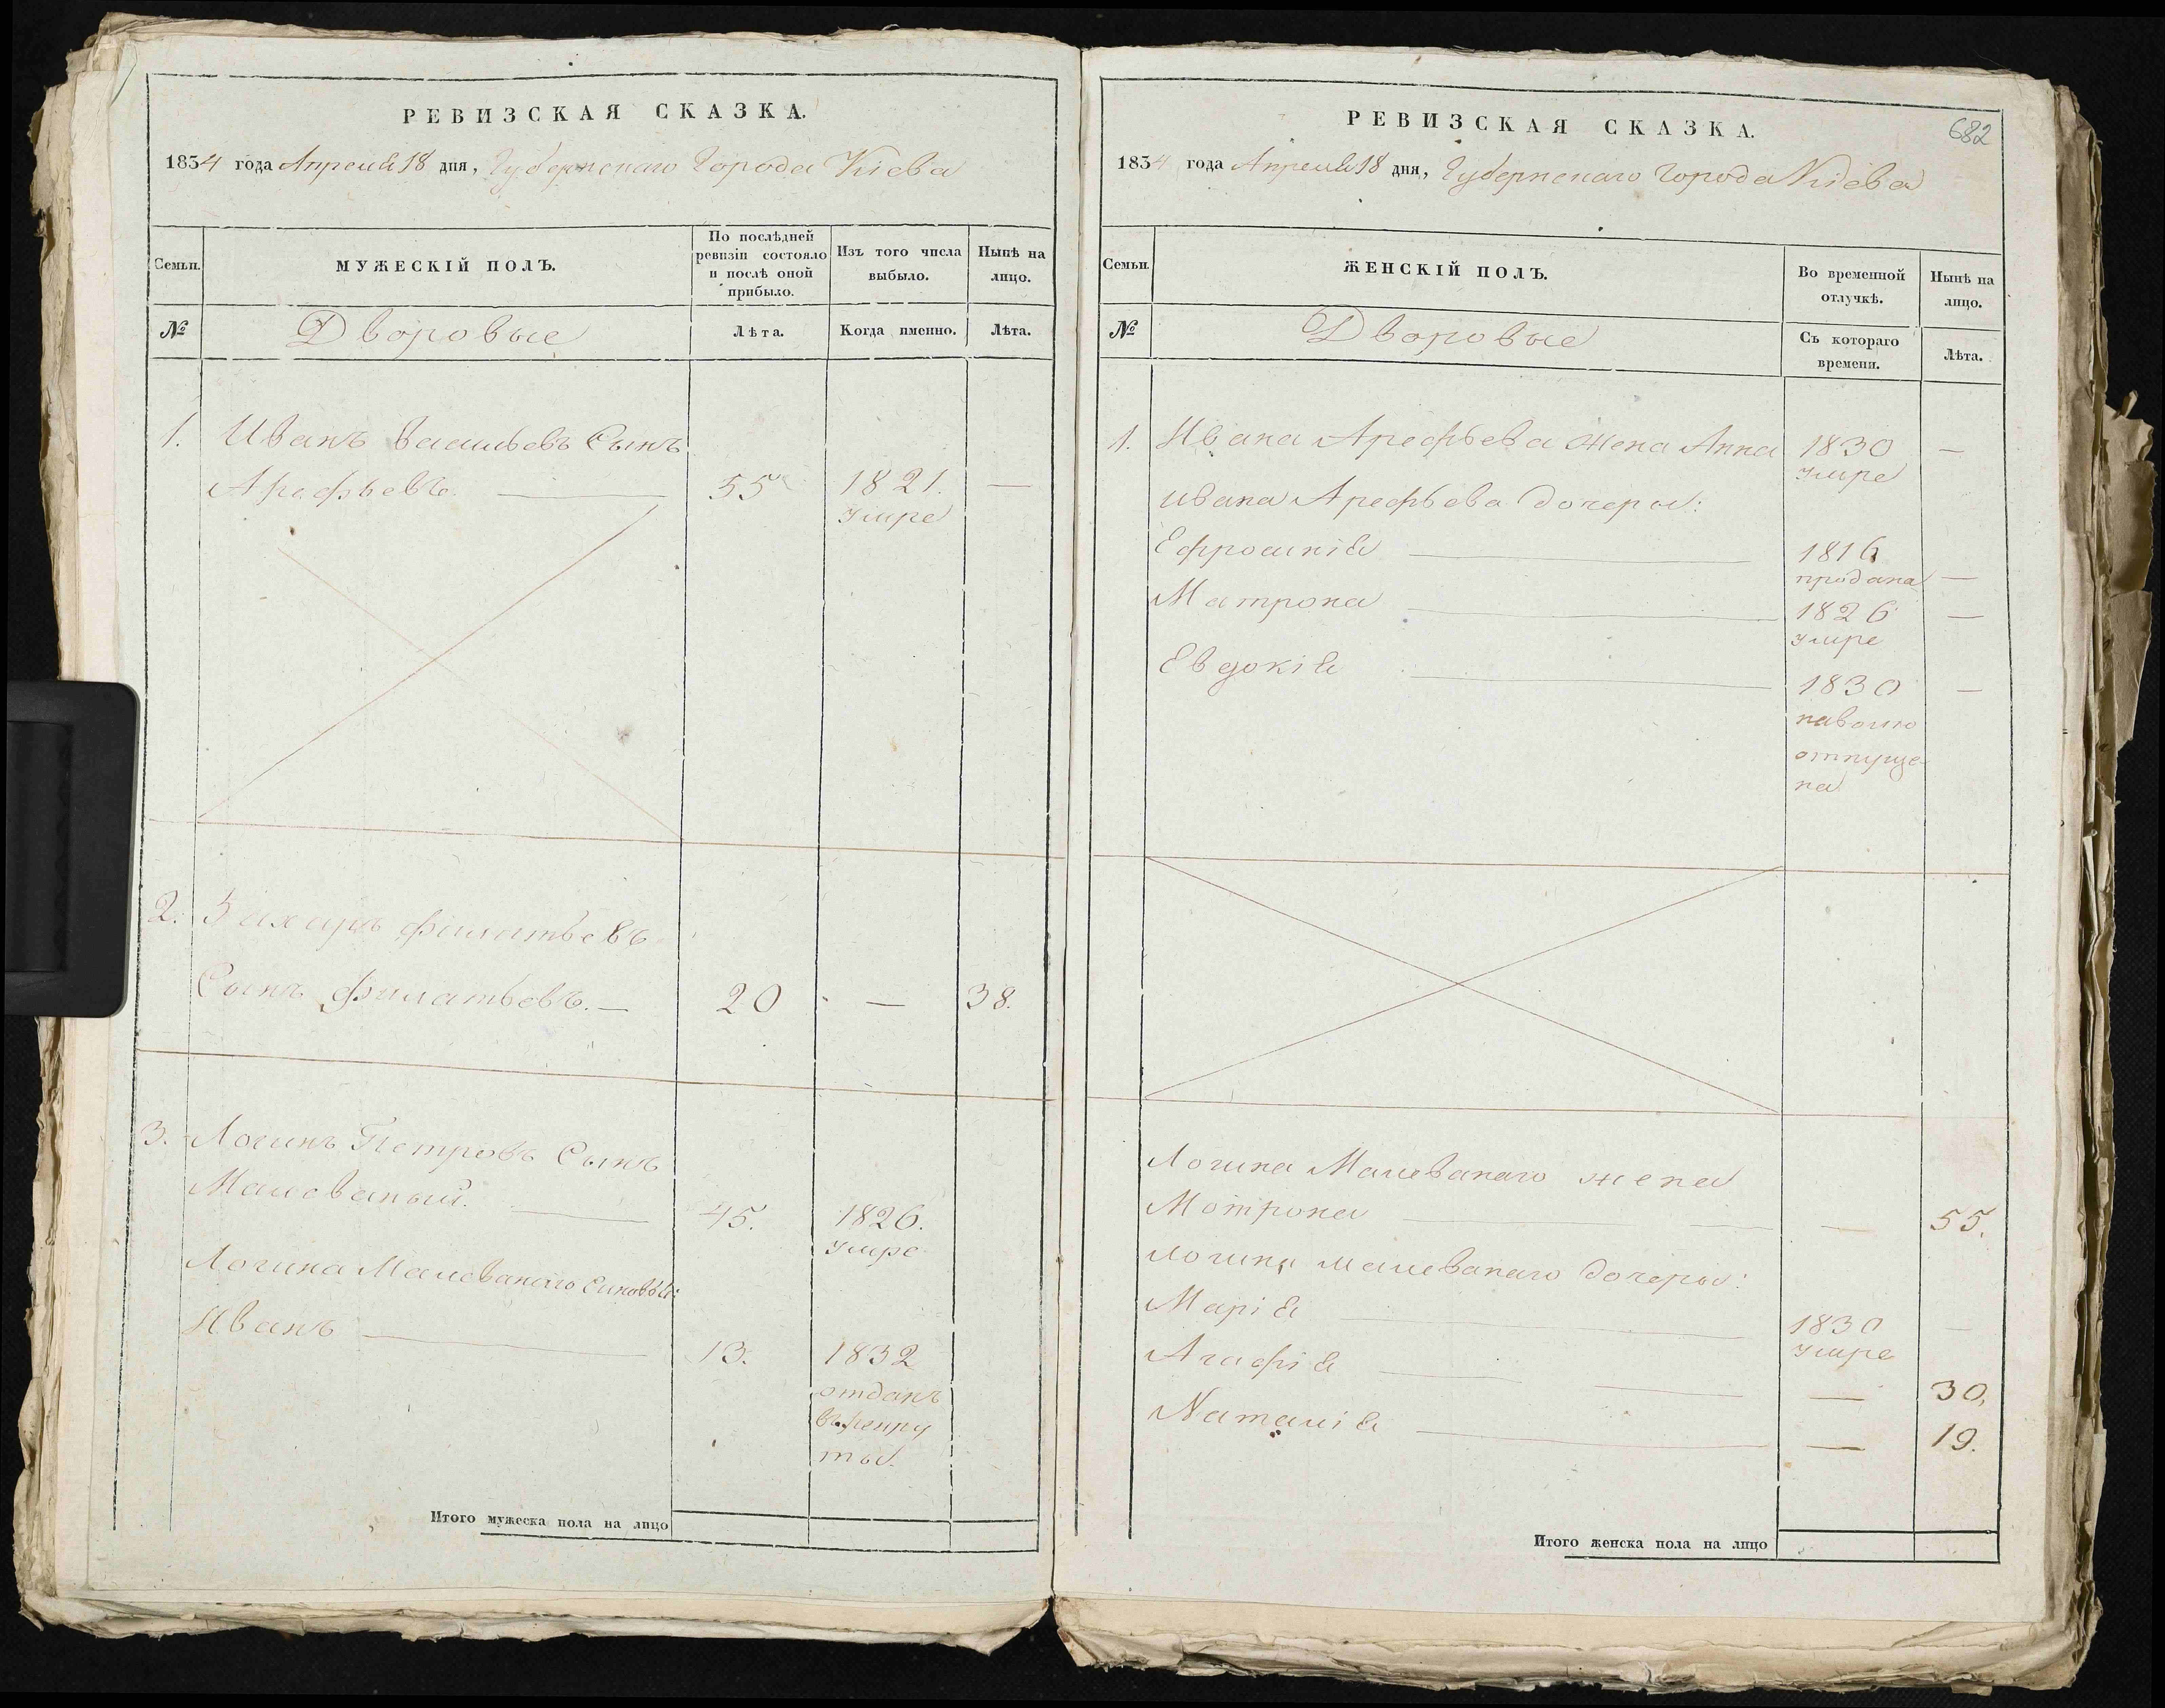 РЕВИЗСКАЯ СКАЗКА.
1834 года Апреля 18 дня, Губернскаго Города Кіева
Семьи.
МУЖЕСКІЙ ПОЛЪ.
По послѣдней ревизіи состояло и послѣ оной прибыло.
Изъ того числа выбыло.
Нынѣ на лицо.
№
Дворовые
Лѣта.
Когда именно.
Лѣта.
1. Иванъ Васильевъ Сынъ
Арефьевъ. 55 1821. —
Умре
2. Захаръ Филатьевъ
Сынъ Филатьевъ. — 20 — 38.
3. Логинъ Петровъ Сынъ
Малеваный. 45. 1826.
Умре
Логина Малеванаго Синовья:
Иванъ 13. 1832
отданъ
въ рекру
ты.
Итого мужеска пола на лицо
682
РЕВИЗСКАЯ СКАЗКА.
1834 года Апреля 18 дня, Губернскаго Города Кіева
Семьи.
ЖЕНСКІЙ ПОЛЪ.
Во временной отлучкѣ.
Нынѣ на лицо.
№
Дворовые
Съ котораго времени.
Лѣта.
1. Ивана Арефьева жена Анна 1830 —
Умре
Ивана Арефьева дочеры:
Ефросинія 1816
продана —
Матрона 1826 —
Умре
Евдокія 1830 —
наволю
отпуще-
на
Логина Малеванаго жена
Мотрона — 55.
Логина Малеванаго дочеры:
Марія 1830 —
Умре
Агафія — 30.
Наталія — 19.
Итого женска пола на лицо